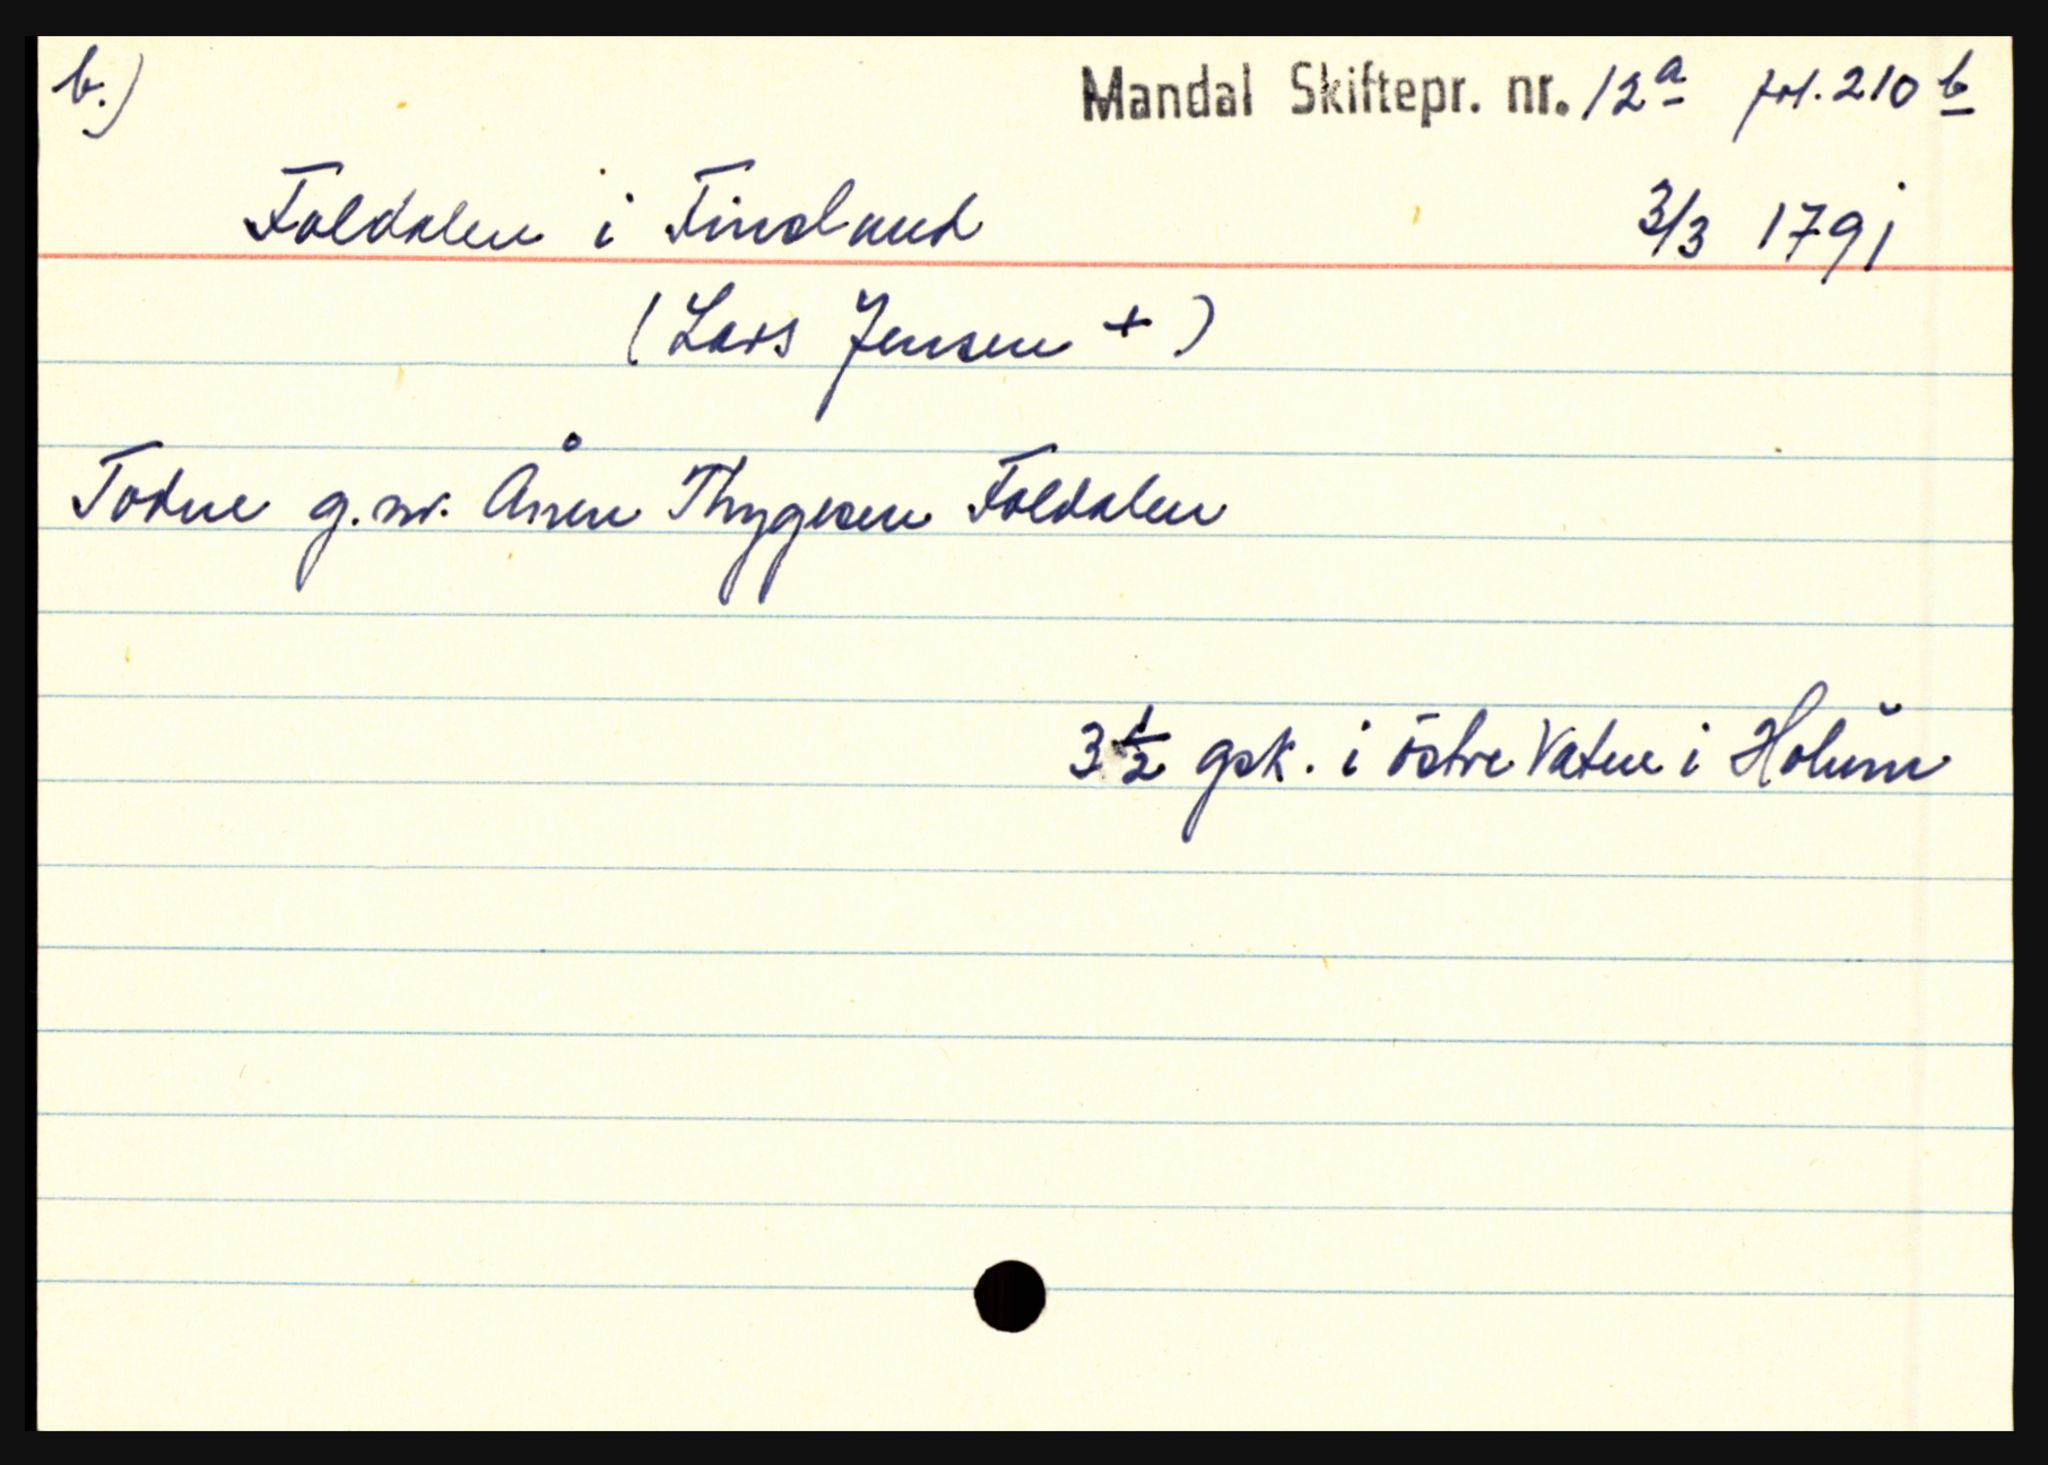 b.) Mandal Skiftepr. nr. 12a fol. 210 b
Foldalen i Finsland 3/3 1791
(Lars Jensen +)
Todne g.m. Ånen Thygesen Foldalen
3 1/2 gsk. i östre Vatne i Holŭm